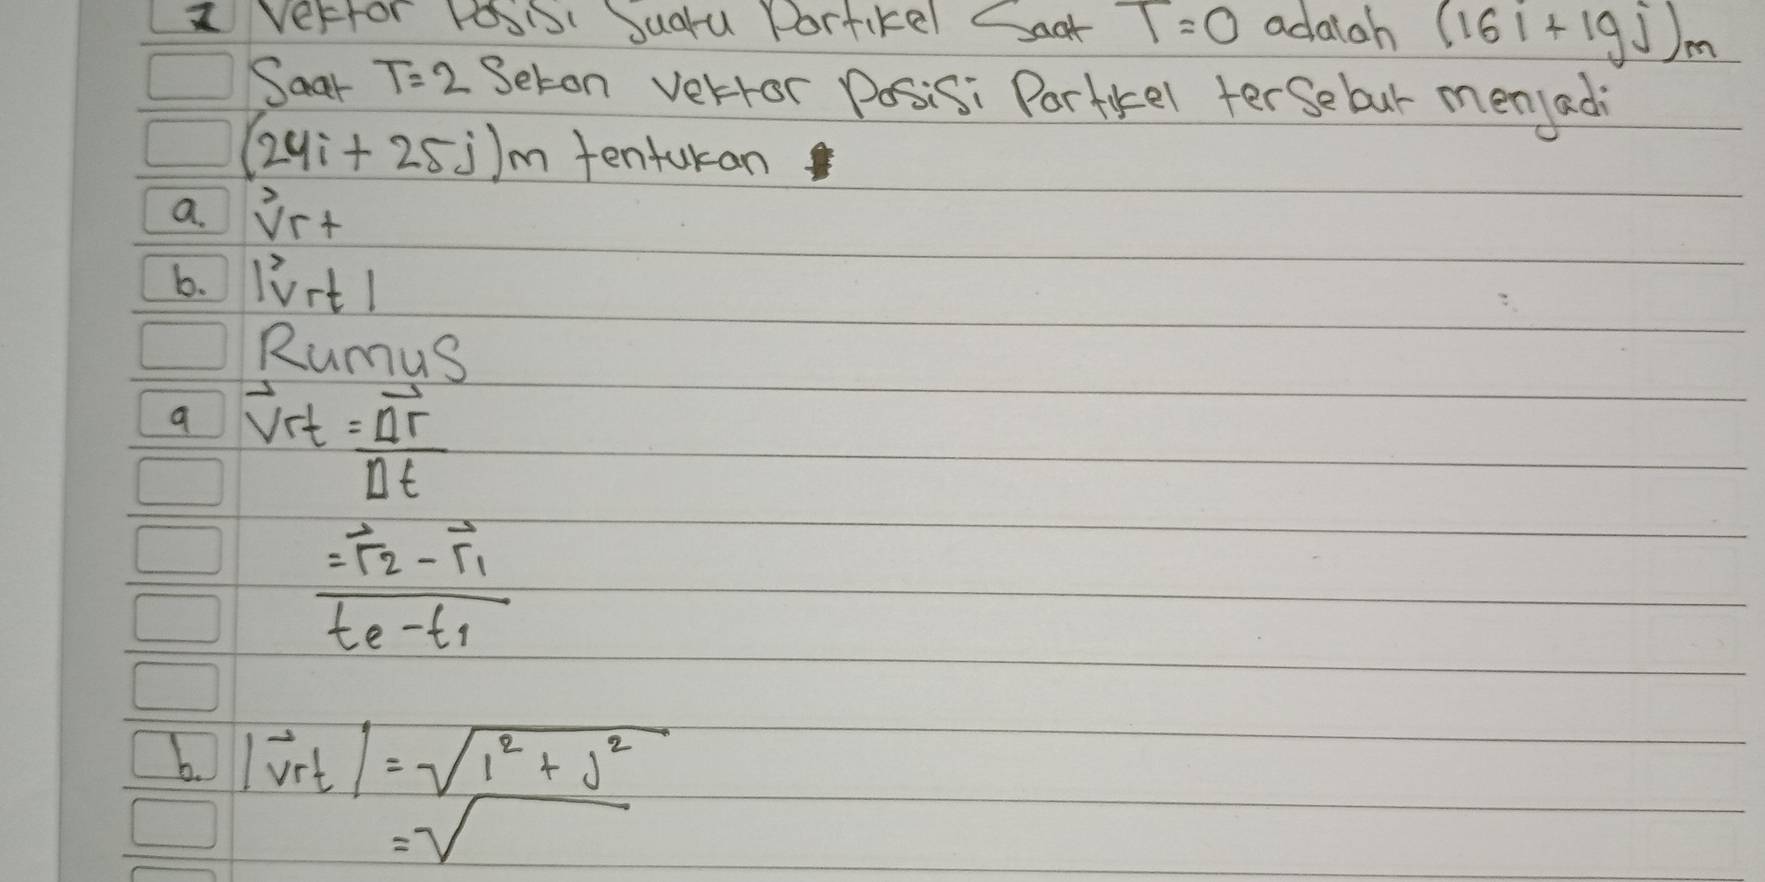 Vektor Posisi Suatu Partikel Saat T=0 adalah (16i + 19j)m
Saat T=2 Sekon vektor Posisi Partikel tersebut menjadi
(24i + 25j)m tentukan
a. v⃗rt
b. |v⃗rt|
Rumus
a v⃗rt = Δr⃗
Δt
= r⃗2 - r⃗1
te - t1
b. |v⃗rt| = √i² + j²
= √